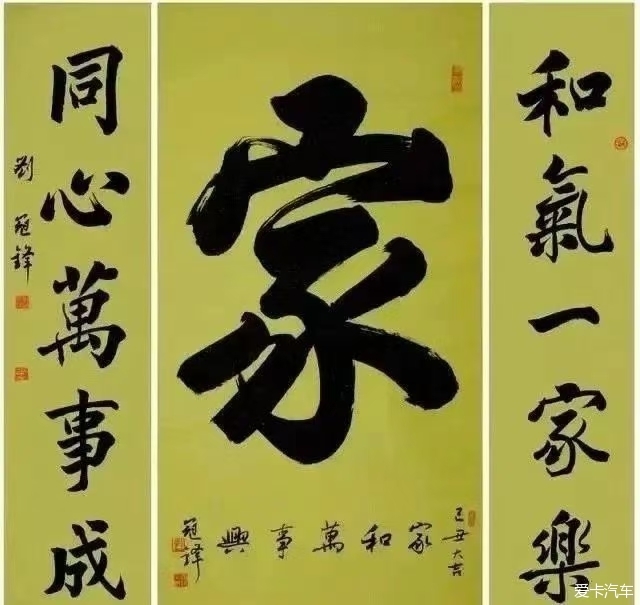 和氣一家樂
家
己丑大吉
家和萬事興
同心萬事成
劉
爱卡汽车